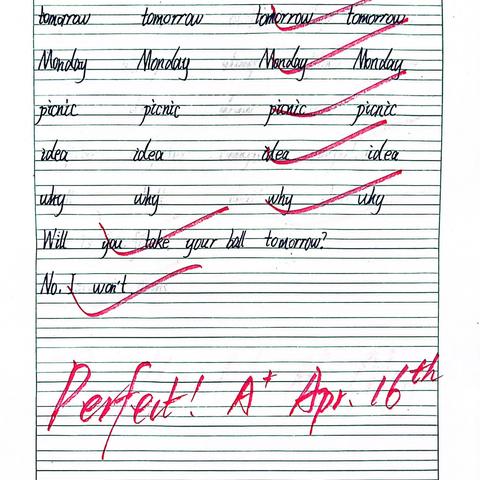 tomorrow tomorrow tomorrow tomorrow
Monday Monday Monday Monday
picnic picnic picnic picnic
idea idea idea idea
why why why why
Will you take your ball tomorrow?
No. I won't.
Perfect! A+ Apr. 16th